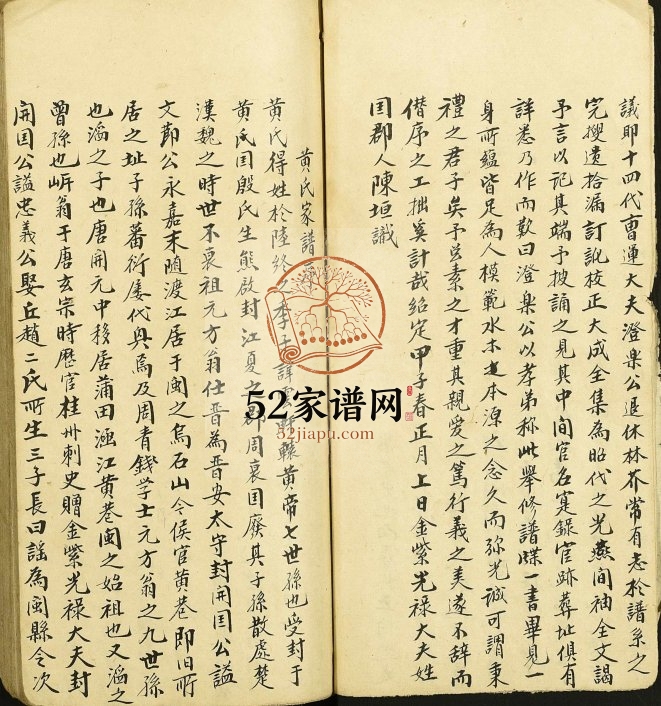 議郎十四代曹運大夫澄渠公退休林莽常有志於譜系之
完搜遺拾漏訂訛校正大成全集為昭代之光燕間袖全文謁
予言以記其端予披誦之見其中間官名寔錄宦跡葬址俱有
詳悉乃作而歎曰澄渠公以孝弟称此舉修譜牒一書畢見一
身所蘊皆足為人模範水木本源之念久而弥光誠可謂秉
禮之君子矣予兹素之才重其親愛之篤行義之美遂不辞而
僣序之工拙奚計哉紹定甲子春正月上日金紫光禄大夫姓
囯郡人陳垣識
黄氏家譜
黄氏得姓於陸終之季子 轅黄帝七世孫也受封于
黄氏囯殷氏生熊啟封江夏之郡周衰囯廢其子孫散處楚
漢魏之時世不衰祖元方翁仕晋為晋安太守封開囯公謚
文節公永嘉末随渡江居于閩之烏石山今侯官黄巷即旧所
居之址子孫蕃衍屡代與焉及周青錢学士元方翁之九世孫
也滔之子也唐開元中移居蒲田涵江黄巷閩之始祖也又滔之
曾孫也岍翁于唐玄宗時歷官桂州刺史贈金紫光禄大夫封
開囯公謚忠義公娶丘趙二氏所生三子長曰謡為閩縣令次
52家谱网
52jiapu.com